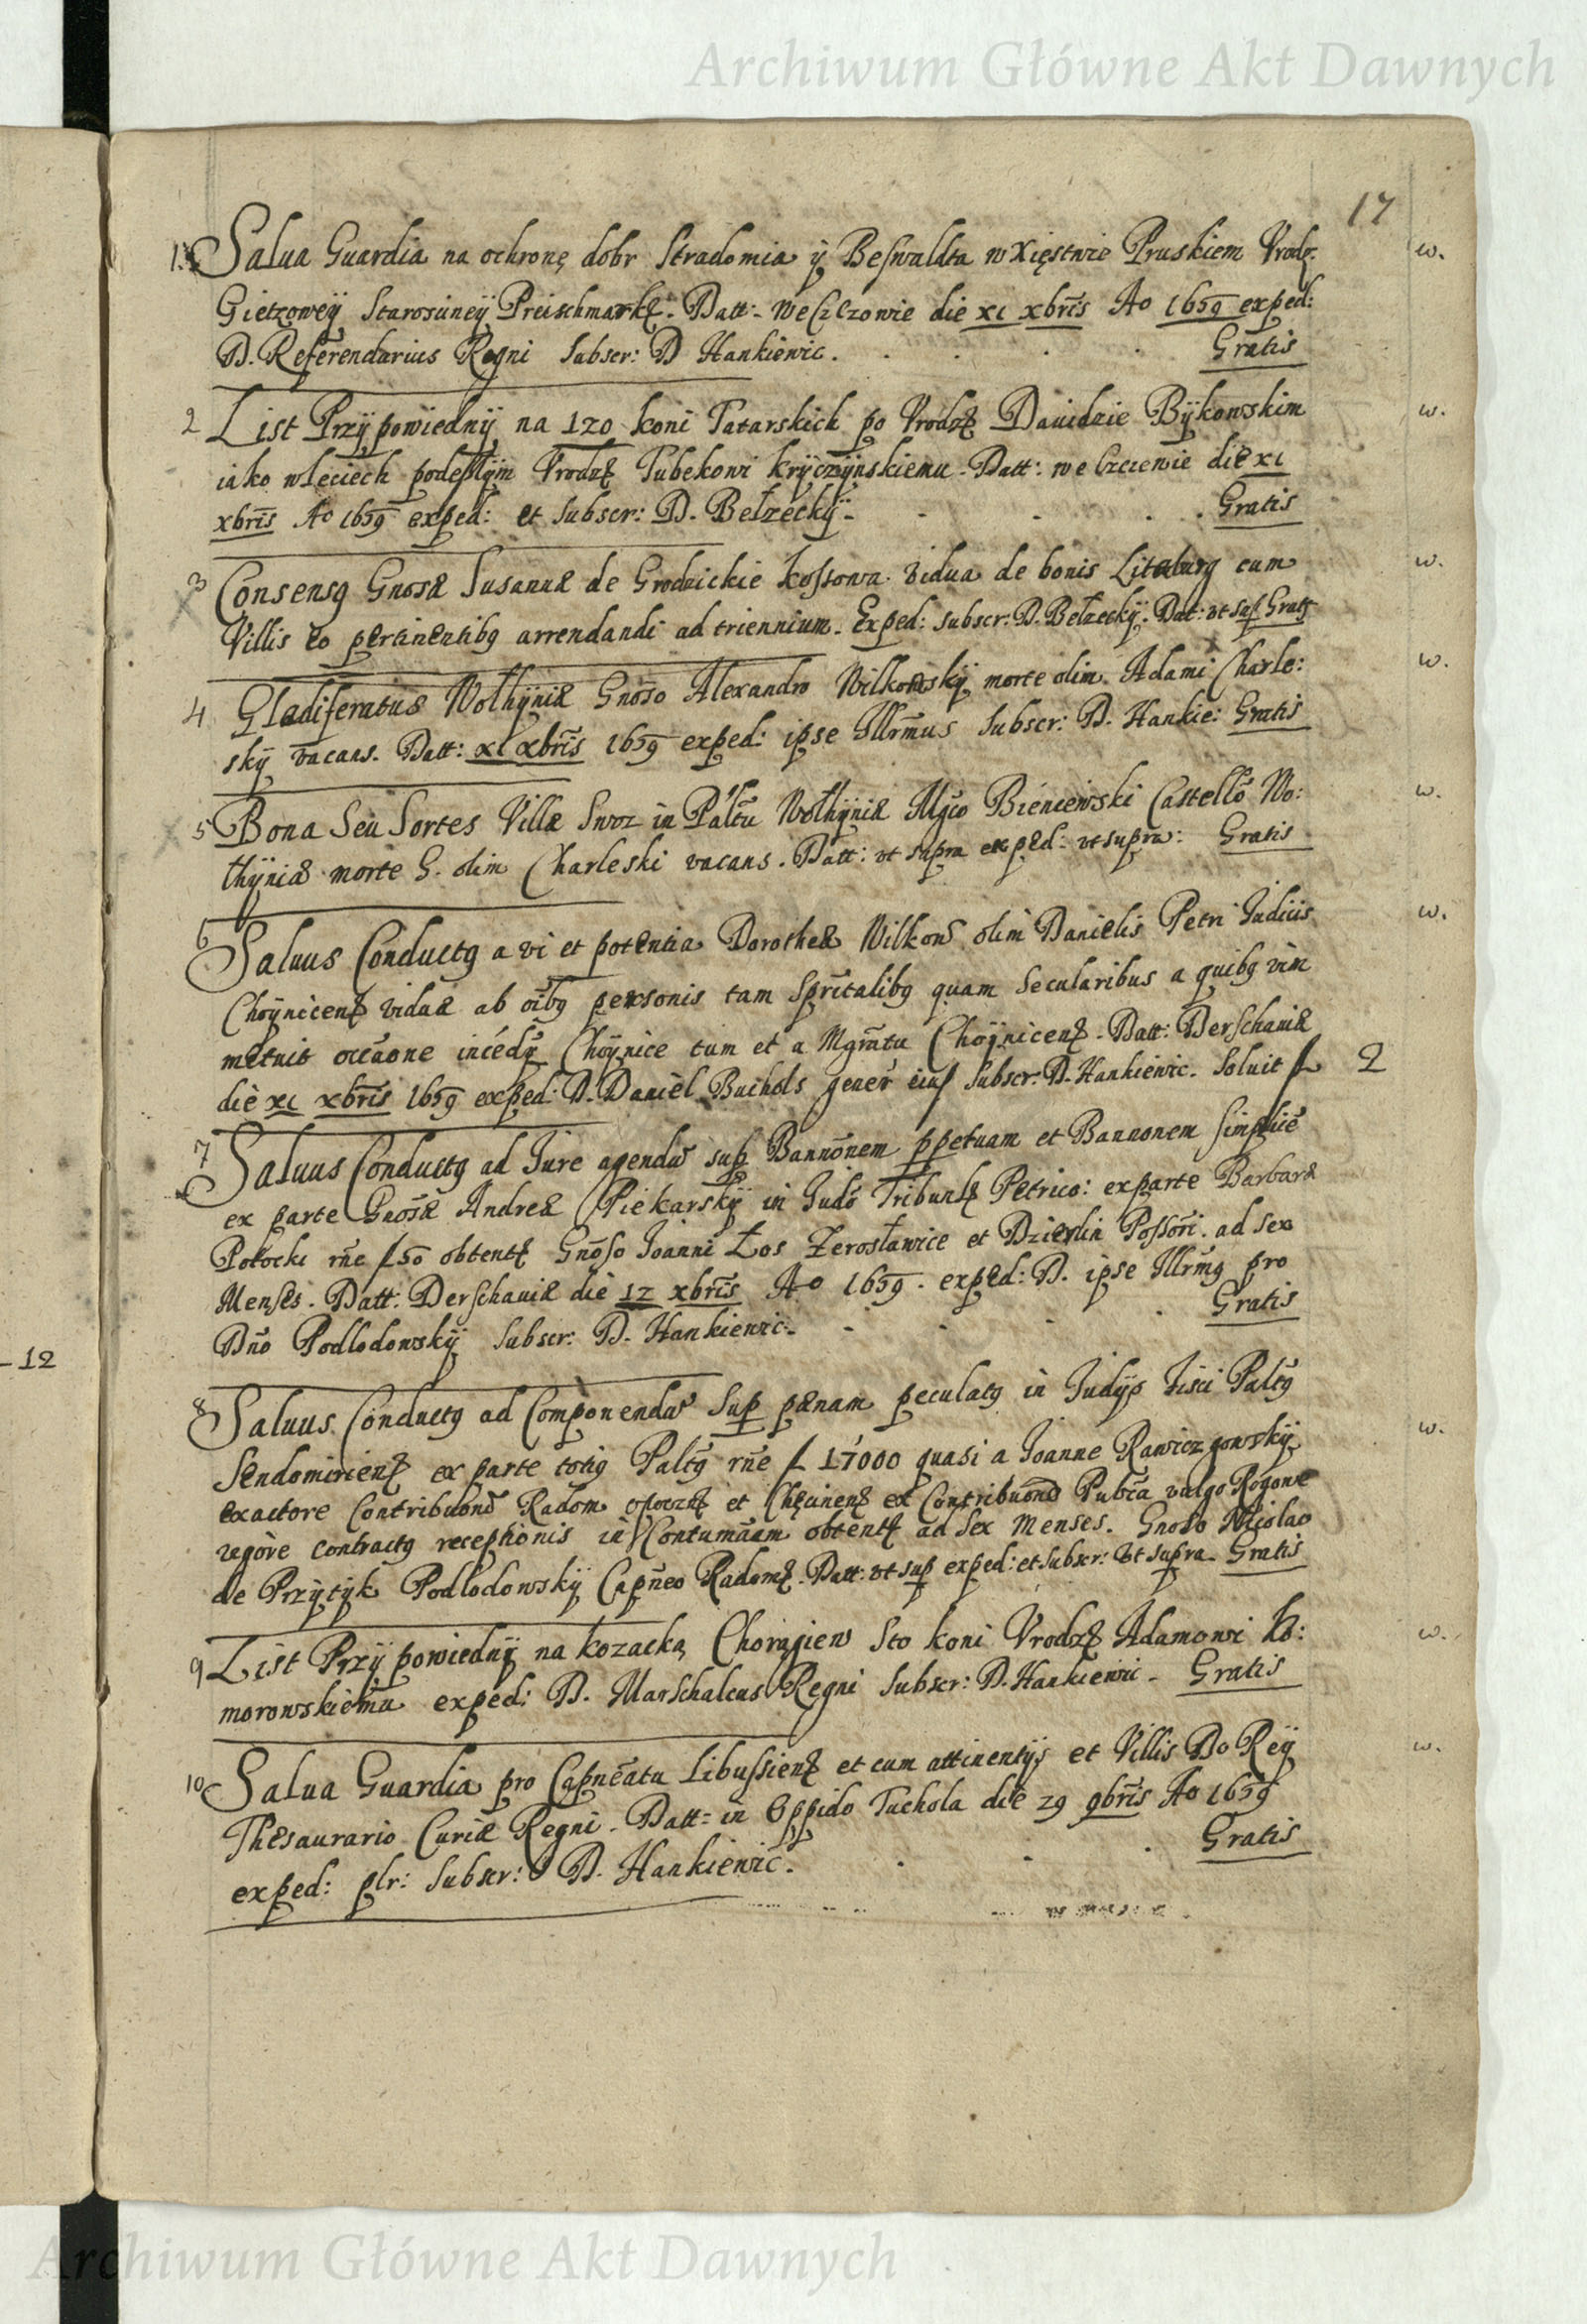 Archiwum Główne Akt Dawnych
17
1. Salua Guardia na ochronę dobr Stradomia ÿ Beswaldta w Xięstwie Pruskiem Vrodz. w.
Gietzoweÿ Starosciney Preischmark: Datt: we Czczowie die xi xbris Ao 1659 exped:
D. Referendarius Regni Subscr: D Hankiewic. Gratis
2 List Przÿpowiednÿ na 120 koni Tatarskich po Vrodz Dauidzie Bÿkowskim w.
iako w leciech podeszłÿm Vrodz Tubekowi krÿczÿnskiemu. Datt: we Czczewie die xi
xbris Ao 1659 exped: et Subscr: D. Bełzeckÿ. Gratis
3 Consensq Gnosæ Susannæ de Grodzickie kossowa vidua de bonis Litaburg cum w.
Villis eo pertinentibq arrendandi ad triennium. Exped: subscr: D. Bełzeckÿ. Dat: vt sup Gratis
4 Gladiferatus Wołhÿniæ Gnoso Alexandro Wilkowskÿ morte olim Adami Charle: w.
skÿ vacans. Datt: xi xbris 1659 exped: ipse Illrmus Subscr: D. Hankie: Gratis
5 Bona Seu Sortes Villæ Swoz in Paltu Wołhÿniæ Mgco Bieniewski Castello Wo: w.
łhÿniæ morte G. olim Charleski vacans. Datt: vt supra exped: vt supra: Gratis
6 Saluus Conductq a vi et potentia Dorotheæ Wilkons olim Danielis Petri Judicis w.
Choÿnicens viduæ ab oibq personis tam Spritalibq quam Secularibus a quibq vim
metuit occaone incedij Choÿnice tum et a Mgratu Choÿnicens. Datt: Derschaviæ
die xi xbris 1659 exped: D. Daniel Buchols gener eius Subscr: D. Hankiewic. Soluit f 2
7 Saluus Conductq ad Jure agendu sup Bannonem ppetuam et Bannonem simplice
ex parte Gnosæ Andreæ Piekarskÿ in Judo Tribunls Petrico: exparte Barbaræ
Potocki rne f 50 obtents Gnoso Joanni Łos Zerosławice et Dzierlin Possori. ad Sex
Menses. Datt: Derschaviæ die 12 xbris Ao 1659. exped: D. ipse Illrmq pro
Dno Podlodowskÿ Subscr: D. Hankiewic. Gratis
- 12
8 Saluus Conductq ad Componendu Sup pænam peculatq in Judÿs fisci Paltq
Sendomiriens ex parte totiq Paltq rne f 17000 quasi a Joanne Rawicz gowskÿ w.
exactore Contribuonu Radom et Chęcinens ex Contribuono Pubca vulgo Pogone
vigore contractq receptionis in Contumaam obtents ad Sex Menses. Gnoso Nicolao
de Przÿtÿk Podlodowskÿ Capneo Radoms. Datt: vt sup exped: et subscr: vt supra. Gratis
9 List Przÿpowiednÿ na kozacką Chorągiew Sto koni Vrodz Adamowi Ko: w.
morowskiemu exped: D. Marschalcus Regni Subscr: D. Hankiewic. Gratis
10 Salua Guardia pro Capneatu Libussiens et cum attinentÿs et Villis Do Reÿ w.
Thesaurario Curiæ Regni. Datt: in Oppido Tuchola die 29 9bris Ao 1659
exped: plr: Subscr: D. Hankiewic. Gratis
Archiwum Główne Akt Dawnych